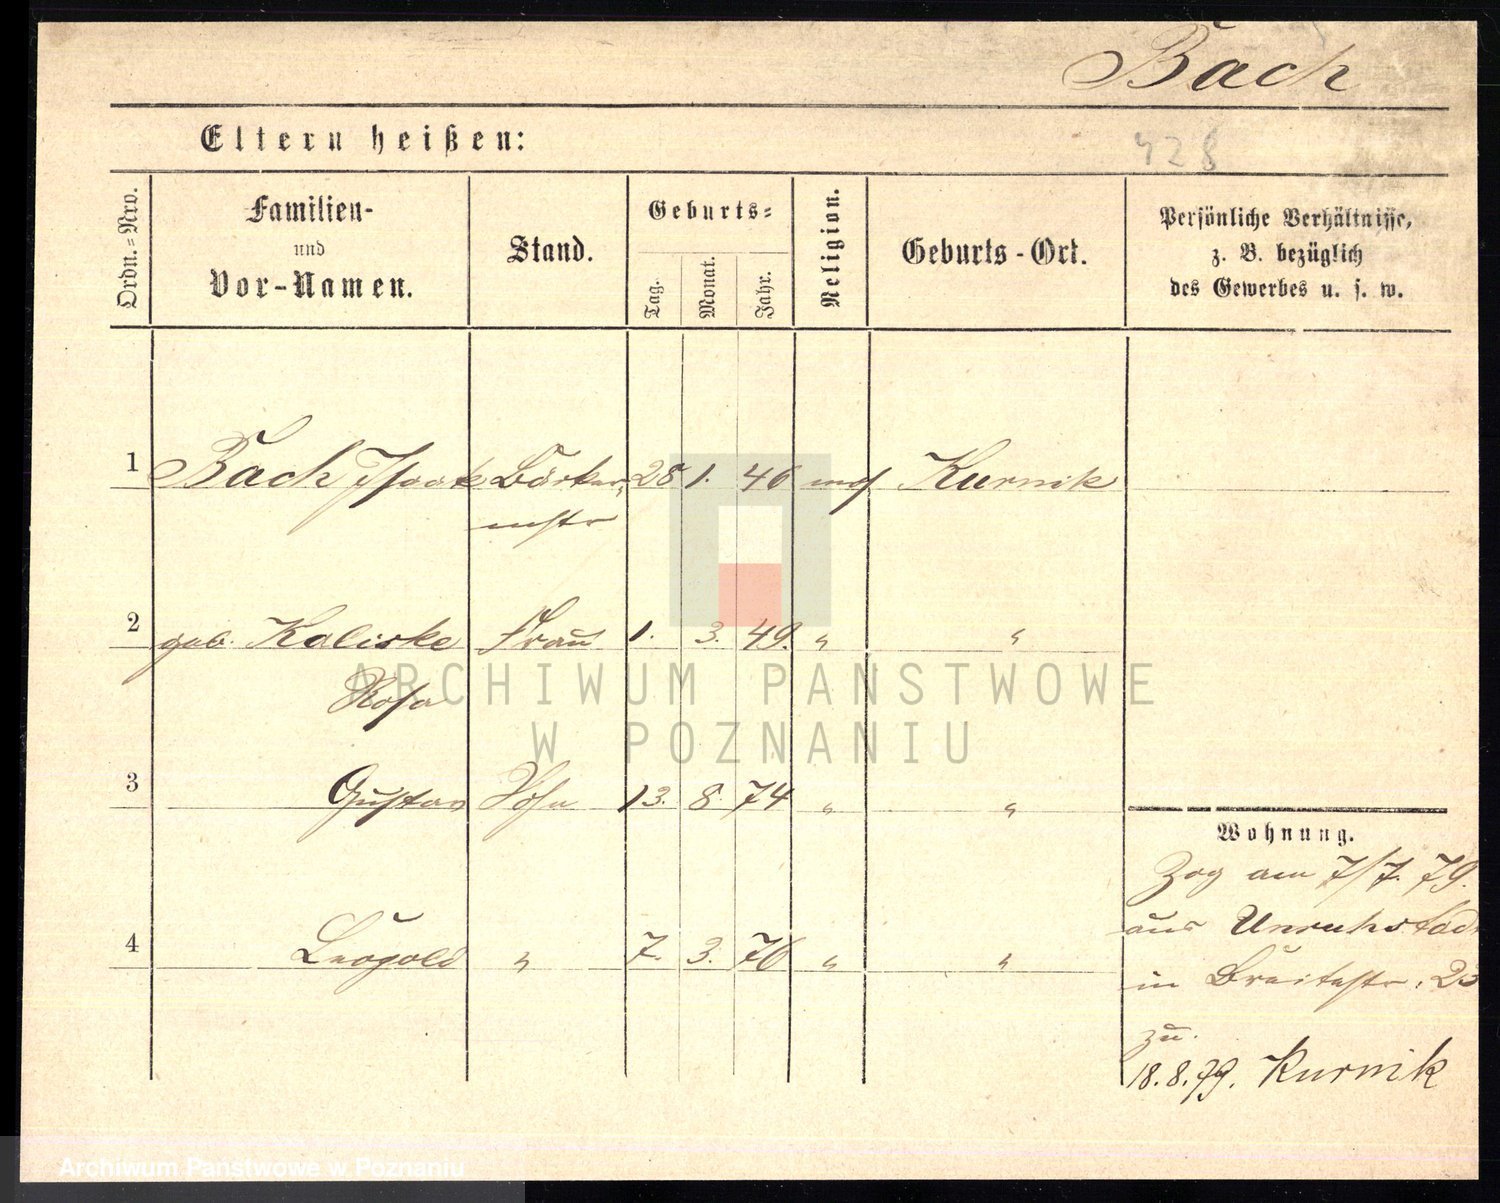 Bach
Eltern heißen:
428
Ordn.=Nro.
Familien-
und
Vor-Namen.
Stand.
Geburts=
Tag.
Monat.
Jahr.
Religion.
Geburts-Ort.
Persönliche Verhältnisse,
z. B. bezüglich
des Gewerbes u. s. w.
1 Bach Isaak Bäcker- 28 1. 46 mos Kurnik
mstr
2 geb. Kaliske Frau 1. 3. 49. " "
Rosa
3 Gustav Sohn 13. 8. 74 " "
Wohnung.
Zog am 7/7. 79.
aus Unruhstadt
4 Leopold " 7. 3. 76 " "
in Breitestr. 23
zu.
18.8.79. Kurnik
ARCHIWUM PANSTWOWE
W POZNANIU
Archiwum Panstwowe w Poznaniu